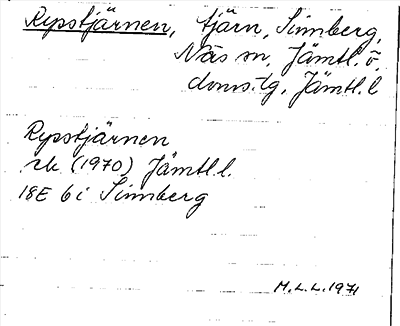 Rypstjärnen, tjärn, Sinnberg,
Näs sn, Jämtl. ö.
doms.tg, Jämtl. l
Rypstjärnen
rk (1970) Jämtl. l.
18E 6i Sinnberg
M.L.L. 1971